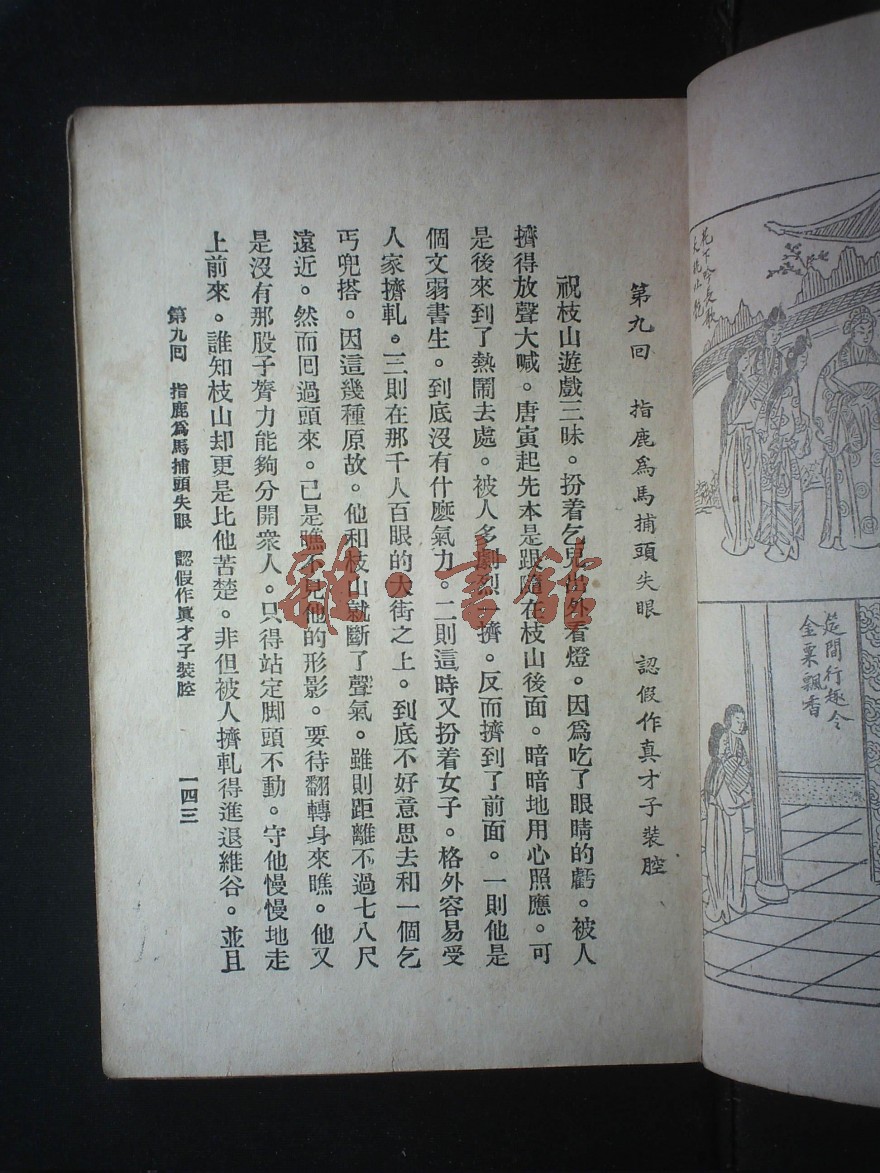 筵間行趣令
金粟飄香
第九回 指鹿爲馬捕頭失眼 認假作真才子裝腔
祝枝山遊戲三昧。扮着乞兒出外看燈。因爲吃了眼睛的虧。被人
擠得放聲大喊。唐寅起先本是跟隨在枝山後面。暗暗地用心照應。可
是後來到了熱鬧去處。被人多劇烈一擠。反而擠到了前面。一則他是
個文弱書生。到底沒有什麽氣力。二則這時又扮着女子。格外容易受
人家擠軋。三則在那千人百眼的大街之上。到底不好意思去和一個乞
丐兜搭。因這幾種原故。他和枝山就斷了聲氣。雖則距離不過七八尺
遠近。然而囘過頭來。已是瞧不見他的形影。要待翻轉身來瞧。他又
是沒有那股子膂力能夠分開衆人。只得站定脚頭不動。守他慢慢地走
上前來。誰知枝山却更是比他苦楚。非但被人擠軋得進退維谷。並且
第九囘 指鹿爲馬捕頭失眼 認假作眞才子裝腔 一四三
雜·書館